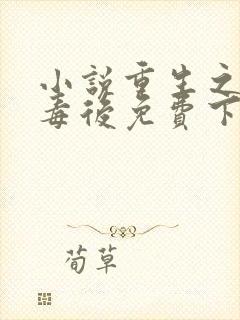 小説重生之
毒後免費下
荀草